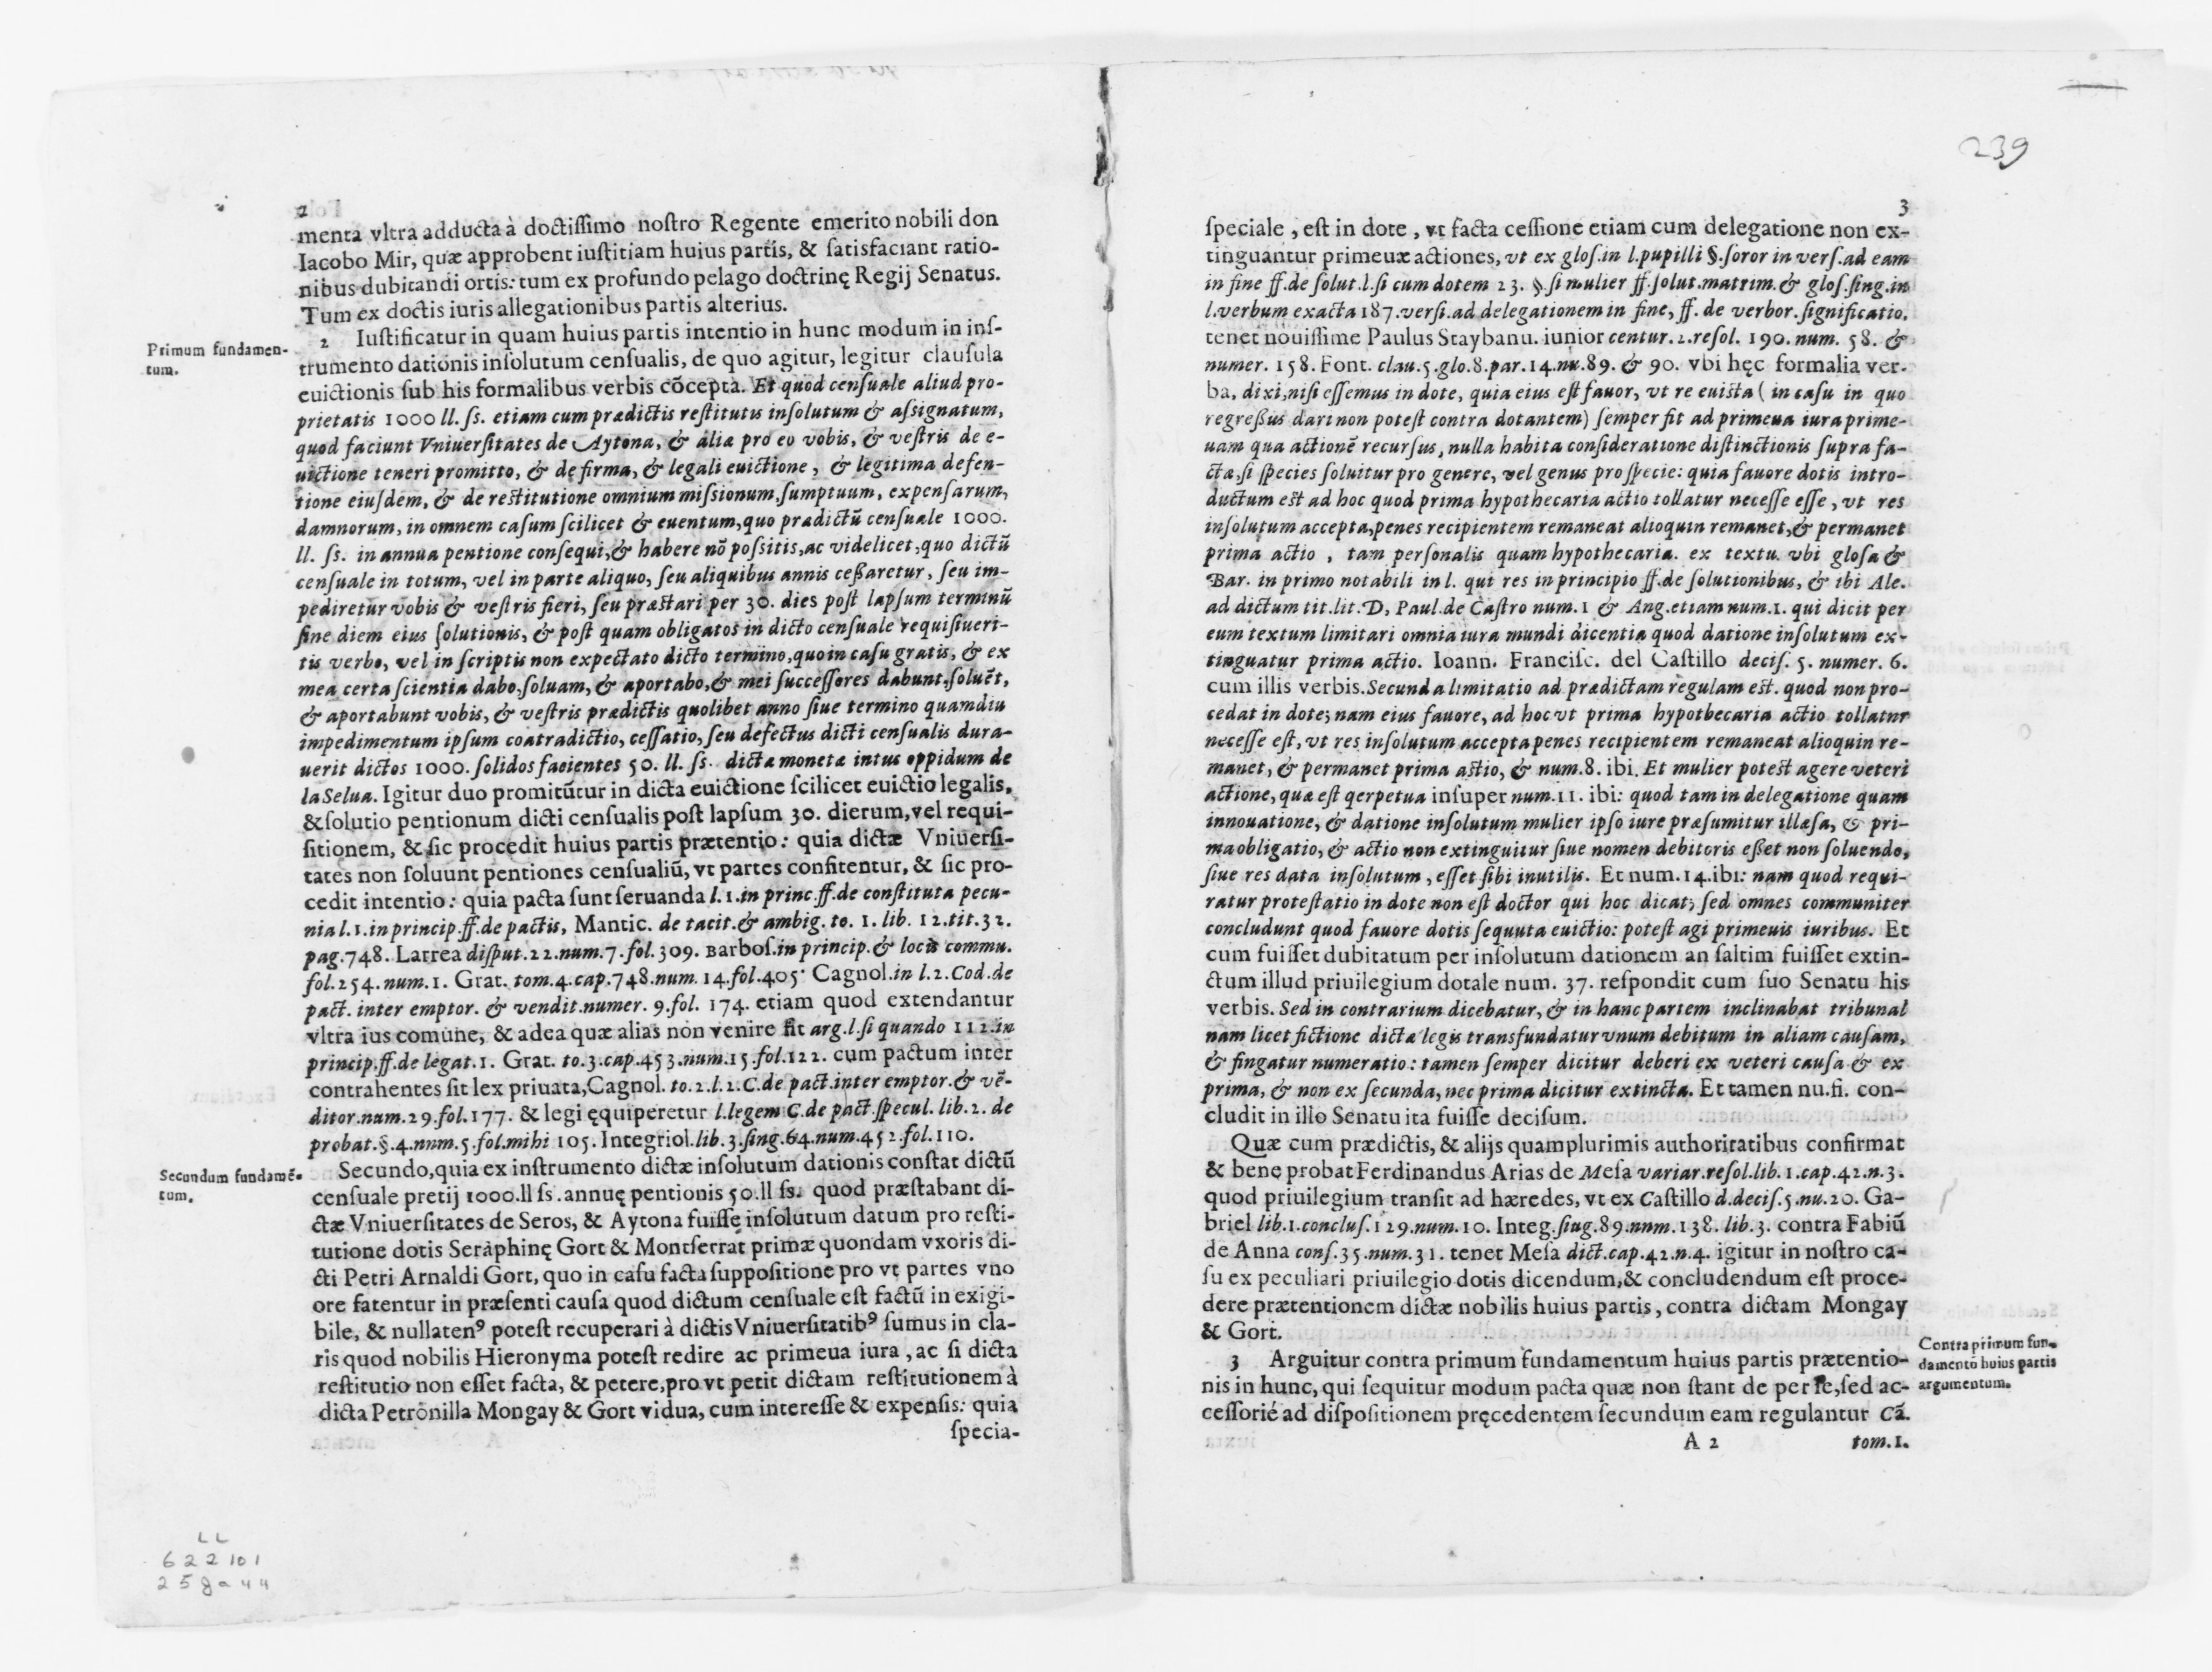 2
menta vltra adducta à doctissimo nostro Regente emerito nobili don
Iacobo Mir, quæ approbent iustitiam huius partis, & satisfaciant ratio-
nibus dubitandi ortis: tum ex profundo pelago doctrinę Regij Senatus.
Tum ex doctis iuris allegationibus partis alterius.
Primum fundamen-
tum.
2 Iustificatur in quam huius partis intentio in hunc modum in ins-
trumento dationis insolutum censualis, de quo agitur, legitur clausula
euictionis sub his formalibus verbis cõcepta. Et quod censuale aliud pro-
prietatis 1000 ll. ss. etiam cum prædictis restitutis insolutum & assignatum,
quod faciunt Vniuersitates de Aytona, & aliæ pro eo vobis, & vestris de e-
uictione teneri promitto, & de firma, & legali euictione, & legitima defen-
tione eiusdem, & de restitutione omnium missionum, sumptuum, expensarum,
damnorum, in omnem casum scilicet & euentum, quo prædictũ censuale 1000.
ll. ss. in annua pentione consequi, & habere nõ possitis, ac videlicet, quo dictũ
censuale in totum, vel in parte aliquo, seu aliquibus annis cessaretur, seu im-
pediretur vobis & vestris fieri, seu præstari per 30. dies post lapsum terminũ
sine diem eius solutionis, & post quam obligatos in dicto censuale requisiueri-
tis verbo, vel in scriptis non expectato dicto termino, quo in casu gratis, & ex
mea certa scientia dabo, soluam, & aportabo, & mei successores dabunt, soluẽt,
& aportabunt vobis, & vestris prædictis quolibet anno siue termino quamdiu
impedimentum ipsum contradictio, cessatio, seu defectus dicti censualis dura-
uerit dictos 1000. solidos facientes 50. ll. ss. dictæ monetæ intus oppidum de
la Selua. Igitur duo promitũtur in dicta euictione scilicet euictio legalis,
& solutio pentionum dicti censualis post lapsum 30. dierum, vel requi-
sitionem, & sic procedit huius partis prætentio: quia dictæ Vniuersi-
tates non soluunt pentiones censualiũ, vt partes confitentur, & sic pro-
cedit intentio: quia pacta sunt seruanda l.1.in princ.ff.de constituta pecu-
nia l.1.in princip.ff.de pactis, Mantic. de tacit.& ambig. to. 1. lib. 12.tit.32.
pag.748. Larrea disput.22.num.7.fol.309. Barbos.in princip.& locis commu.
fol.254.num.1. Grat. tom.4.cap.748.num.14.fol.405. Cagnol.in l.2.Cod.de
pact. inter emptor. & vendit.numer. 9.fol. 174. etiam quod extendantur
vltra ius comune, & adea quæ alias non venire fit arg.l.si quando 112.in
princip.ff.de legat.1. Grat. to.3.cap.453.num.15.fol.122. cum pactum inter
contrahentes sit lex priuata, Cagnol. to.2.l.2.C.de pact.inter emptor.& vẽ-
ditor.num.29.fol.177. & legi ęquiperetur l.legem C.de pact.specul. lib.2. de
probat.§.4.num.5.fol.mihi 105. Integriol.lib.3.sing.64.num.452.fol.110.
Secundum fundamẽ-
tum.
Secundo, quia ex instrumento dictæ insolutum dationis constat dictũ
censuale pretij 1000.ll ss. annuę pentionis 50.ll ss. quod præstabant di-
ctæ Vniuersitates de Seros, & Aytona fuisse insolutum datum pro resti-
tutione dotis Seraphinę Gort & Montserrat primæ quondam vxoris di-
cti Petri Arnaldi Gort, quo in casu facta suppositione pro vt partes vno
ore fatentur in præsenti causa quod dictum censuale est factũ in exigi-
bile, & nullatenꝰ potest recuperari à dictis Vniuersitatibꝰ sumus in cla-
ris quod nobilis Hieronyma potest redire ac primeua iura, ac si dicta
restitutio non esset facta, & petere, pro vt petit dictam restitutionem à
dicta Petronilla Mongay & Gort vidua, cum interesse & expensis: quia
specia-
LL
622101
258a44
239
3
speciale, est in dote, vt facta cessione etiam cum delegatione non ex-
tinguantur primeuæ actiones, vt ex glos.in l.pupilli §.soror in vers.ad eam
in fine ff.de solut.l.si cum dotem 23. §.si mulier ff.solut.matrim.& glos.sing.in
l.verbum exacta 187.versi.ad delegationem in fine, ff. de verbor.significatio.
tenet nouissime Paulus Staybanu. iunior centur.2.resol. 190.num. 58. &
numer. 158. Font. clau.5.glo.8.par.14.nu.89. & 90. vbi hęc formalia ver-
ba, dixi, nisi essemus in dote, quia eius est fauor, vt re euicta (in casu in quo
regressus dari non potest contra dotantem) semper fit ad primeua iura prime-
uam qua actionẽ recursus, nulla habita consideratione distinctionis supra fa-
ctæ, si species soluitur pro genere, vel genus pro specie: quia fauore dotis intro-
ductum est ad hoc quod prima hypothecaria actio tollatur necesse esse, vt res
insolutum accepta, penes recipientem remaneat alioquin remanet, & permanet
prima actio, tam personalis quam hypothecaria. ex textu. vbi glosa &
Bar. in primo notabili in l. qui res in principio ff.de solutionibus, & ibi Ale.
ad dictum tit.lit.D, Paul.de Castro num.1 & Ang.etiam num.1. qui dicit per
eum textum limitari omnia iura mundi dicentia quod datione insolutum ex-
tinguatur prima actio. Ioann. Francisc. del Castillo decis. 5. numer. 6.
cum illis verbis. Secunda limitatio ad prædictam regulam est. quod non pro-
cedat in dote; nam eius fauore, ad hoc vt prima hypothecaria actio tollatur
necesse est, vt res insolutum accepta penes recipientem remaneat alioquin re-
manet, & permanet prima actio, & num.8. ibi. Et mulier potest agere veteri
actione, quæ est qerpetua insuper num.11. ibi: quod tam in delegatione quam
innouatione, & datione insolutum mulier ipso iure præsumitur illæsa, & pri-
ma obligatio, & actio non extinguitur siue nomen debitoris esset non soluendo,
siue res data insolutum, esset sibi inutilis. Et num.14.ibi: nam quod requi-
ratur protestatio in dote non est doctor qui hoc dicat; sed omnes communiter
concludunt quod fauore dotis sequuta euictio: potest agi primeuis iuribus. Et
cum fuisset dubitatum per insolutum dationem an saltim fuisset extin-
ctum illud priuilegium dotale num. 37. respondit cum suo Senatu his
verbis. Sed in contrarium dicebatur, & in hanc partem inclinabat tribunal
nam licet fictione dictæ legis transfundatur vnum debitum in aliam causam,
& fingatur numeratio: tamen semper dicitur deberi ex veteri causa & ex
prima, & non ex secunda, nec prima dicitur extincta. Et tamen nu.fi. con-
cludit in illo Senatu ita fuisse decisum.
Quæ cum prædictis, & alijs quamplurimis authoritatibus confirmat
& bene probat Ferdinandus Arias de Mesa variar.resol.lib.1.cap.42.n.3.
quod priuilegium transit ad hæredes, vt ex Castillo d.decis.5.nu.20. Ga-
briel lib.1.conclus.129.num.10. Integ.siug.89.nnm.138. lib.3. contra Fabiũ
de Anna cons.35.num.31. tenet Mesa dict.cap.42.n.4. igitur in nostro ca-
su ex peculiari priuilegio dotis dicendum, & concludendum est proce-
dere prætentionem dictæ nobilis huius partis, contra dictam Mongay
& Gort.
Contra primum fun-
damentũ huius partis
argumentum.
3 Arguitur contra primum fundamentum huius partis prætentio-
nis in hunc, qui sequitur modum pacta quæ non stant de per se, sed ac-
cessorié ad dispositionem pręcedentem secundum eam regulantur Cã.
A 2 tom.1.